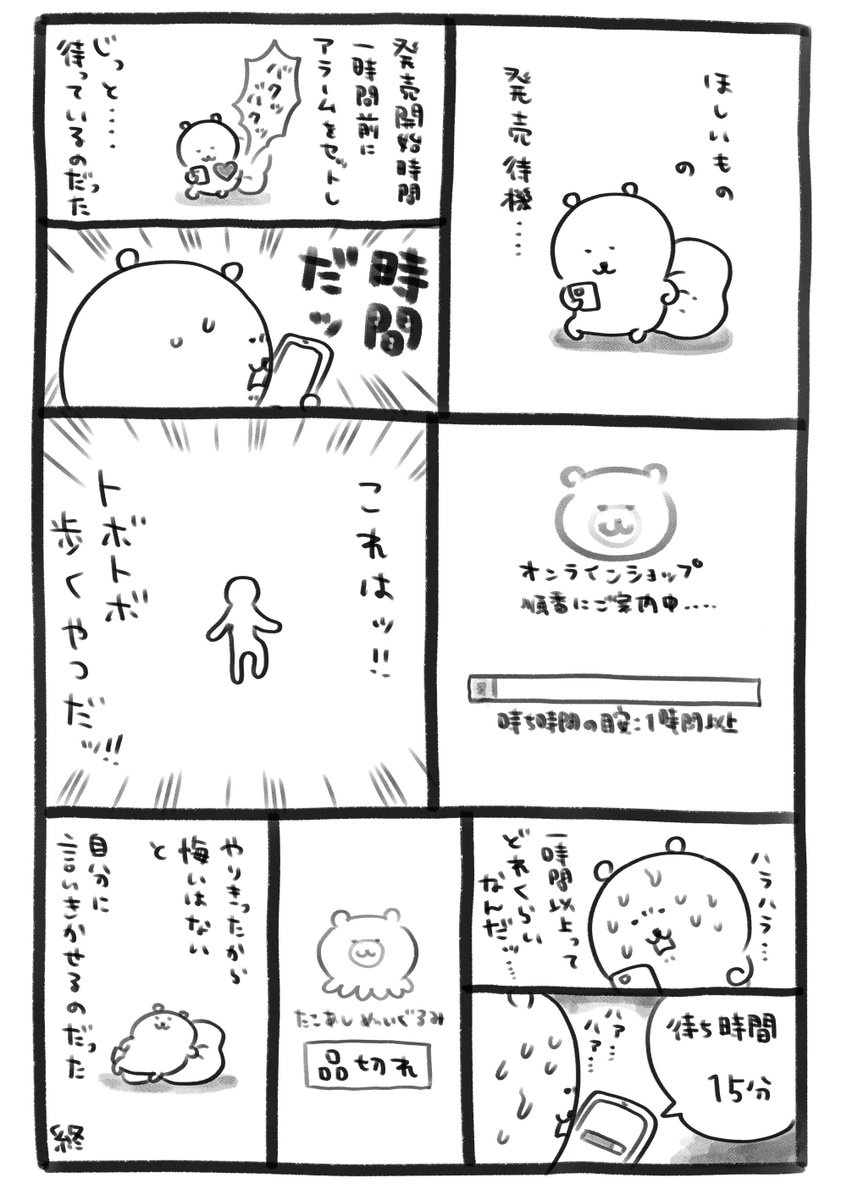 ほしいもの
の
発売待機‥‥
発売開始時間
一時間前に
アラームをセットし
バクッ
バクッ
じっと‥‥
待っているのだった
時間
だッ
オンラインショップ
順番にご案内中‥‥
待ち時間の目安:1時間以上
これはッ!!
トボトボ
歩くやつだッ!!
ハラハラ‥
一時間以上って
どれくらい
なんだッ‥‥
待ち時間
15分
ハァ‥
ハァ‥
たこあしぬいぐるみ
品切れ
やりきったから
悔いはない
と
自分に
言いきかせるのだった
終